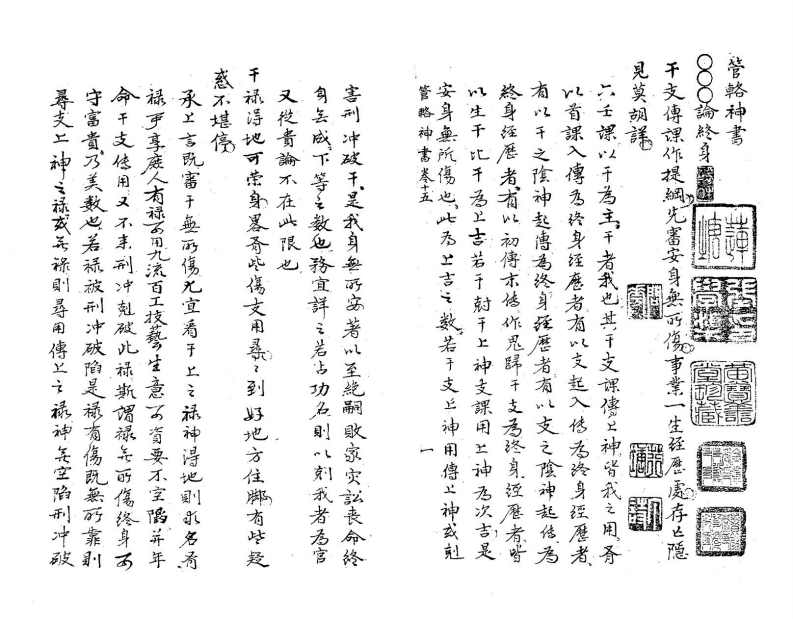 管輅神書
〇〇〇論終身
干支傳課作提綱先審安身無所傷事業一生經歷處存亡隱
見莫胡詳
六壬課以干為主干者我也其干支課傳上神皆我之用有
以首課入傳為終身經歷者有以支起入傳為終身經歷者
有以干之陰神起傳為終身經歷者有以支之陰神起傳為
終身經歷者有以初傳末傳作鬼歸干支為終身經歷者皆
以生干比干為上吉若干尅干上神支課用上神為次吉是
安身無所傷也此為上吉之數若干支上神用傳上神或刻
管輅神書卷十五
一
害刑冲破干是我身無所安著以至絶嗣敗家灾訟喪命終
身無成下等之數也務宜詳之若占功名則以刻我者為官
又從貴論不在此限也
干祿得地可榮身畧有些傷支用尋尋到好地方住脚有些疑
惑不堪停
承上言既審干無所傷尤宜看干上之祿神得地則求名有
祿可享庶人有祿可用九流百工技藝生意可資要不空陷并年
命干支傳用又不來刑冲剋破此祿斯謂祿無所傷終身可
守富貴乃美數也若祿被刑冲破陷是祿有傷既無所靠則
尋支上神之祿或無祿則尋用傳上之祿神無空陷刑冲破